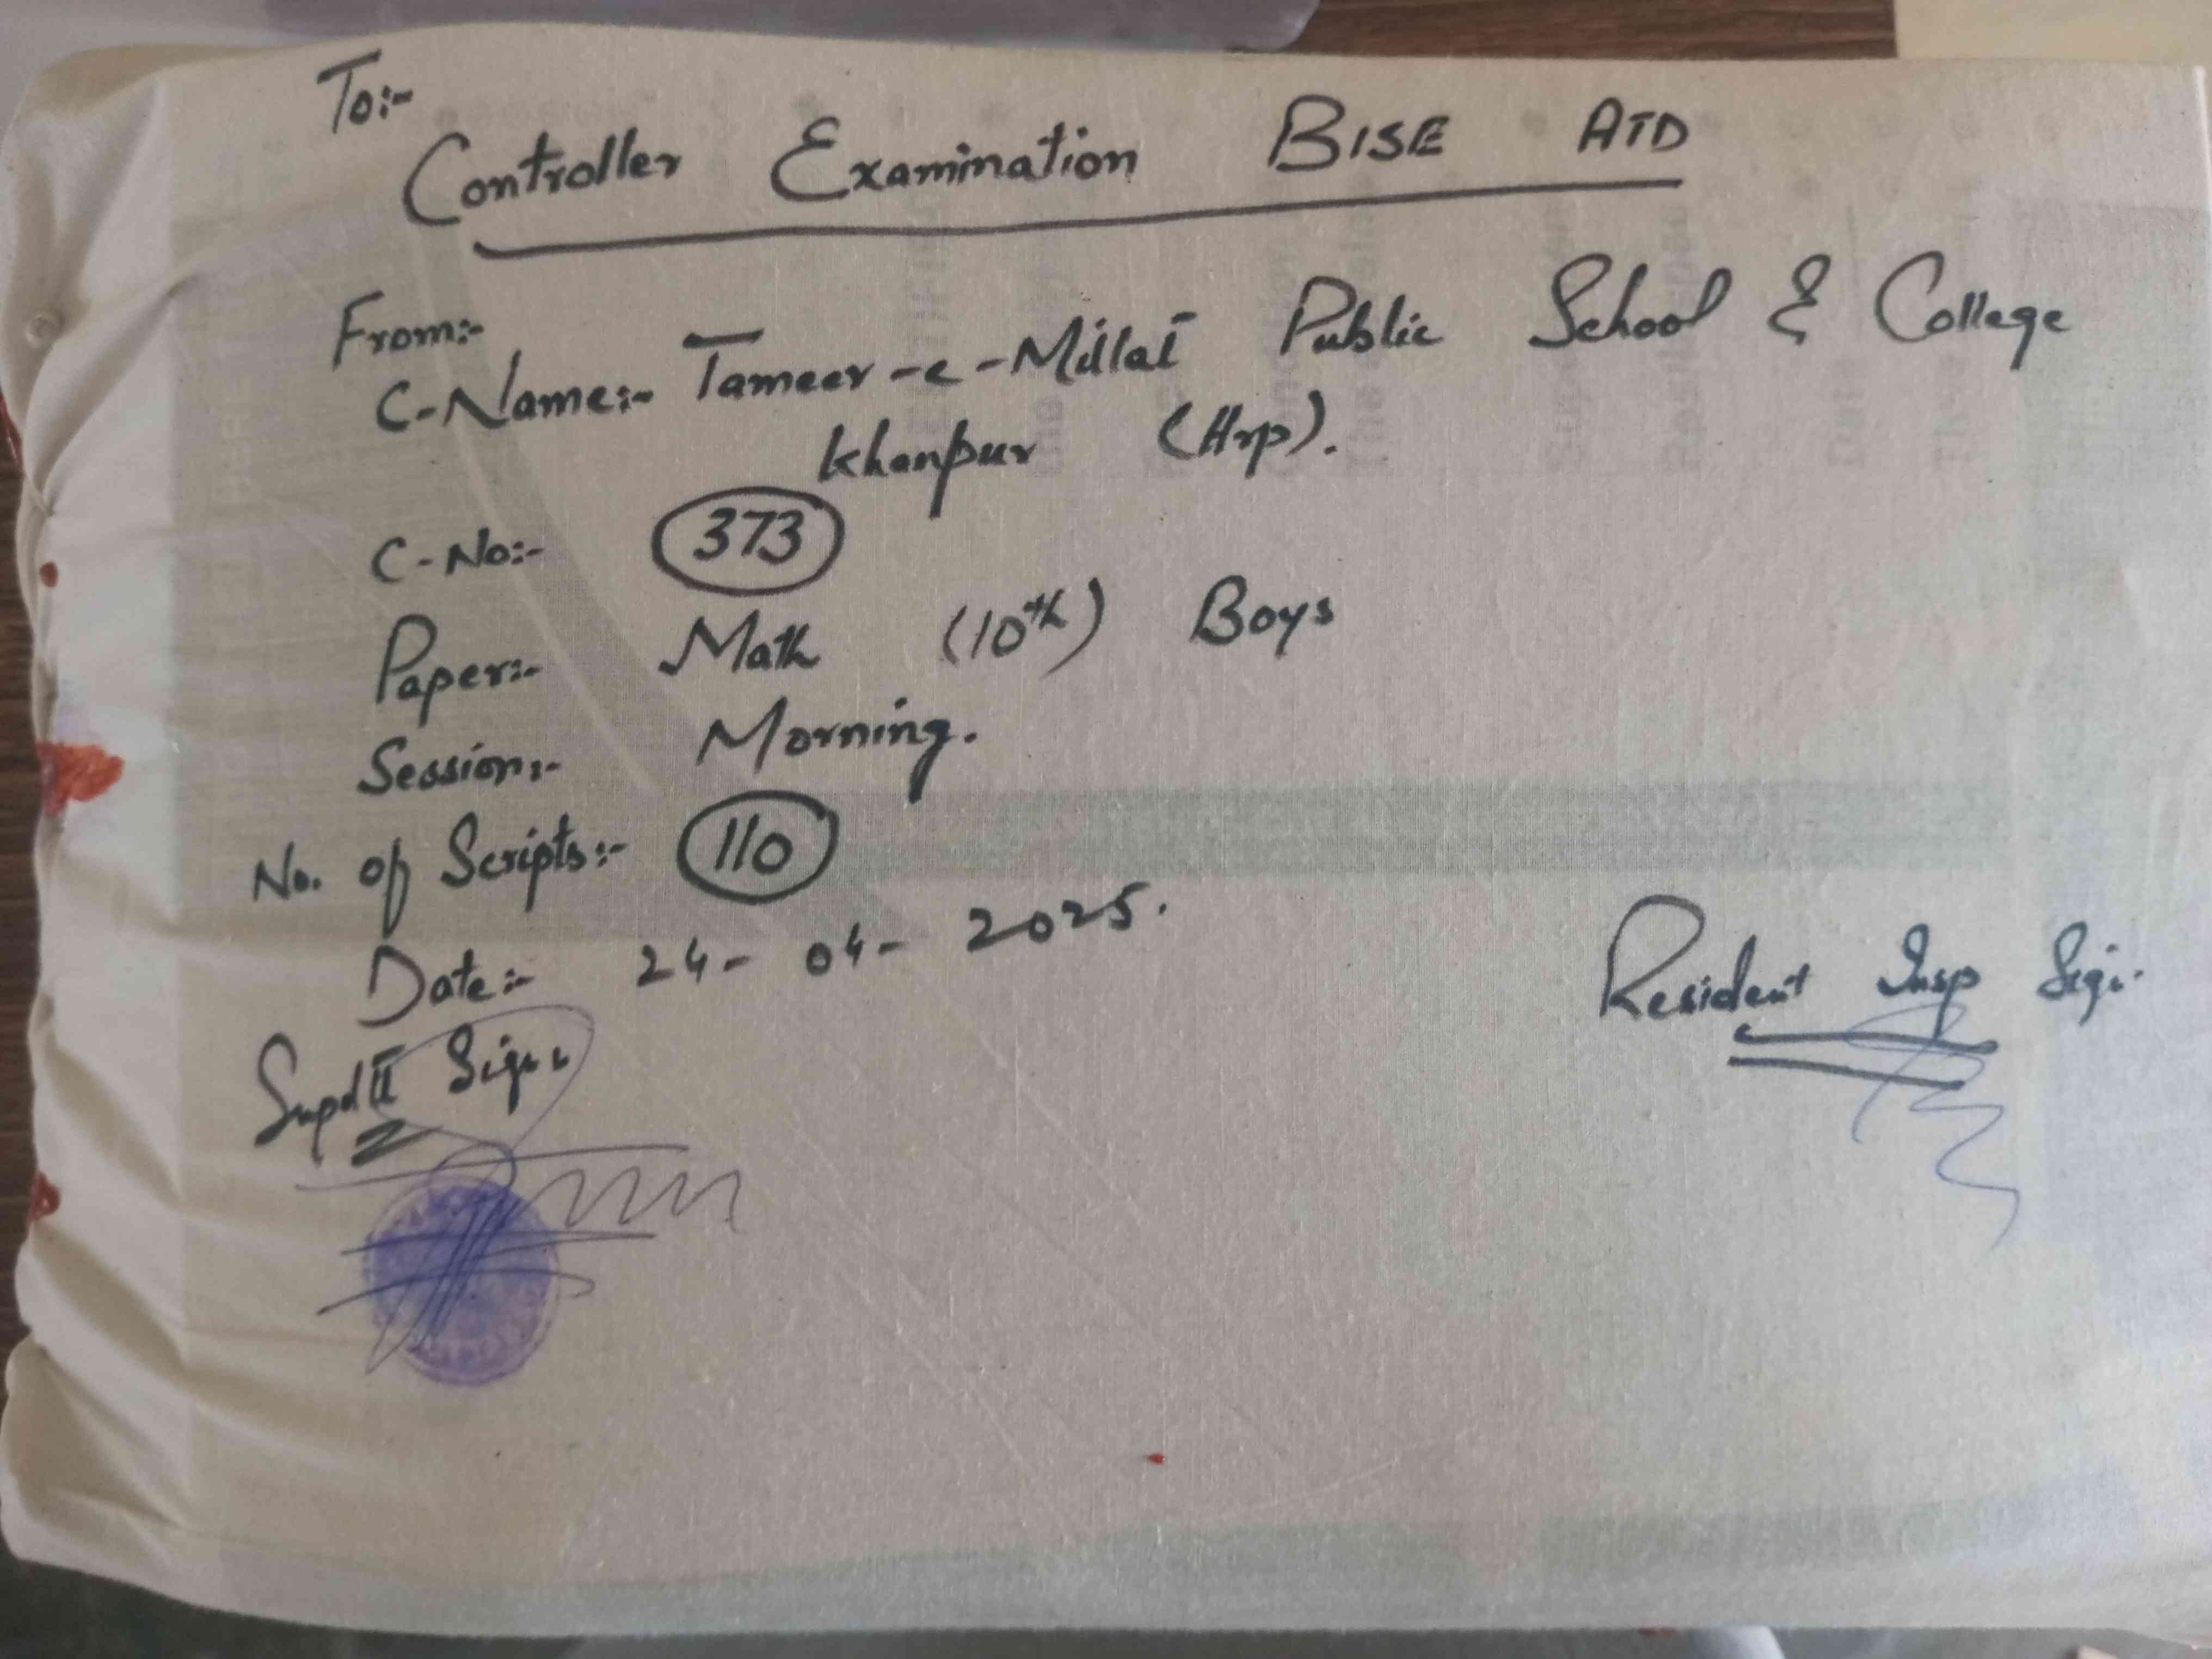 To:-
Controller Examination BISE ATD
From:-
C-Name:- Tameer-e-Millat Public School & College
Khanpur (Hrp).
C-No:- 373
Paper:- Math (10th) Boys
Session:- Morning.
No. of Scripts:- 110
Date:- 24-04-2025.
Resident Insp Sign.
Supdt II Sign.